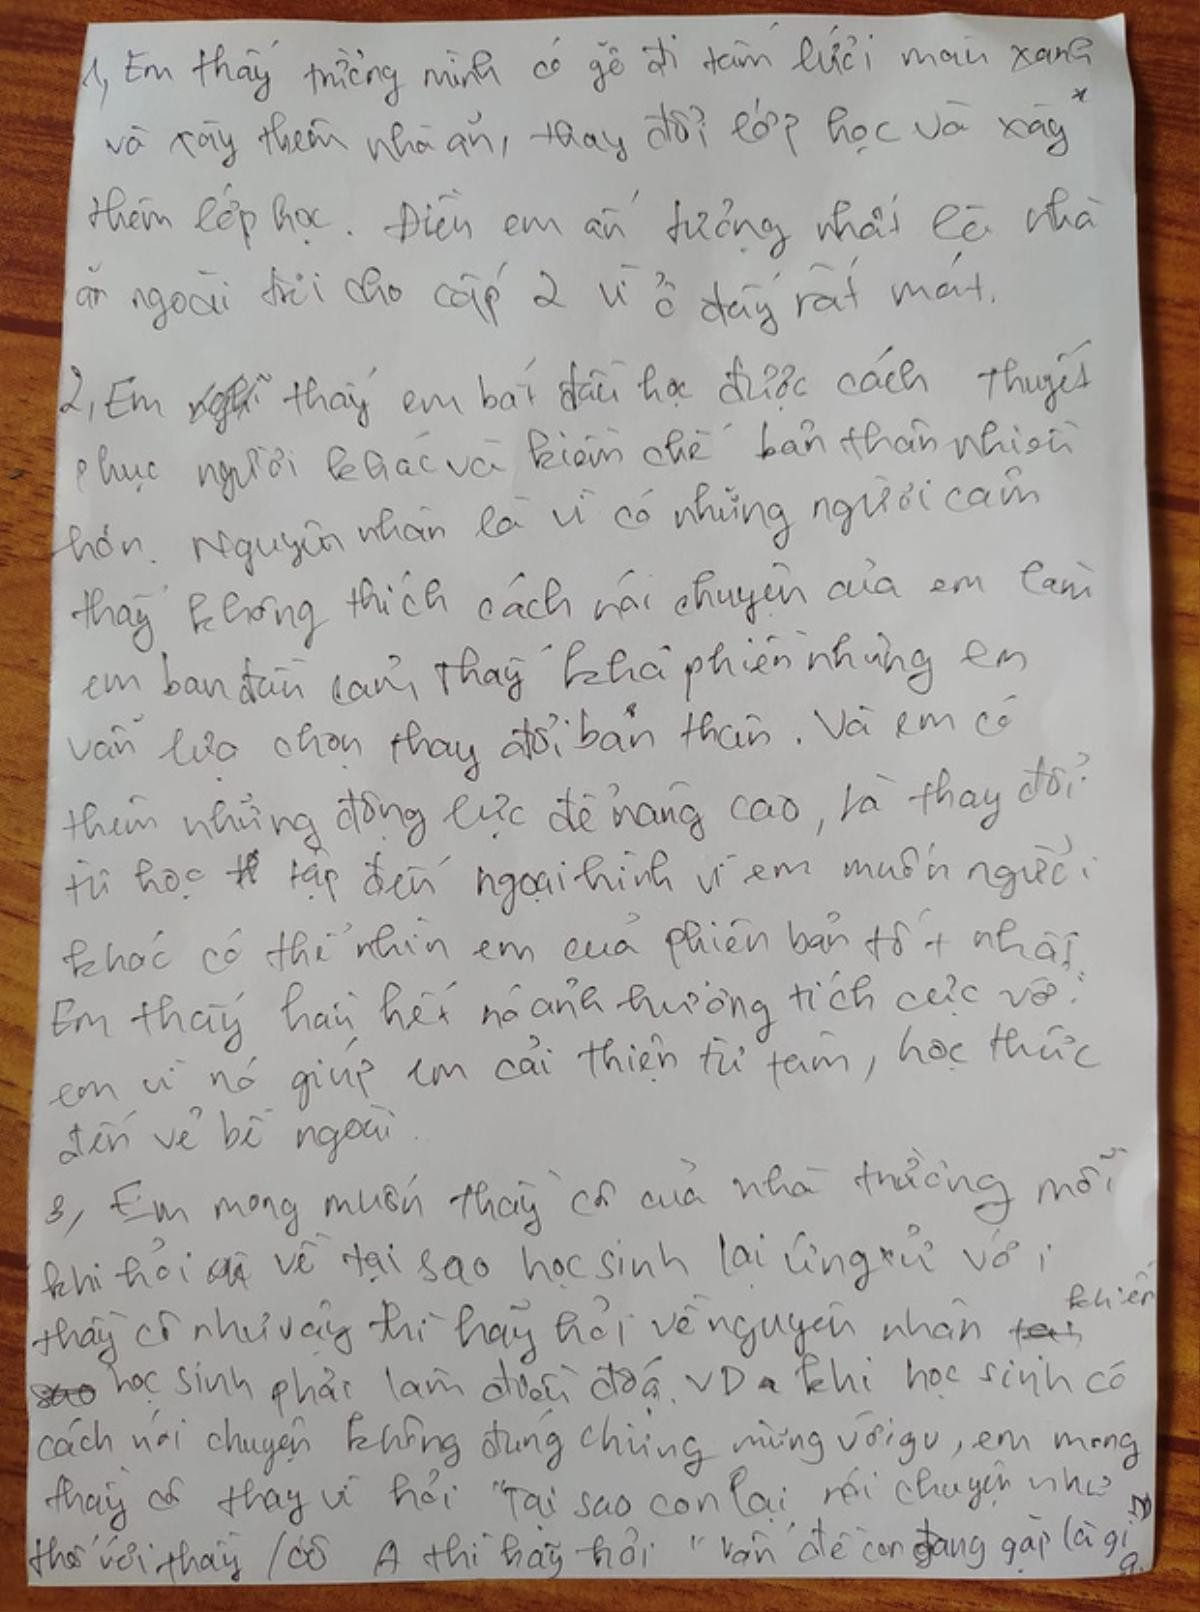 1, Em thấy trường mình có gỡ đi tấm lưới màu xanh
và xây thêm nhà ăn, thay đổi lớp học và xây
thêm lớp học. Điều em ấn tượng nhất là nhà
ăn ngoài trời cho cấp 2 vì ở đấy rất mát.
2, Em thấy em bắt đầu học được cách thuyết
phục người khác và kiềm chế bản thân nhiều
hơn. Nguyên nhân là vì có những người cảm
thấy không thích cách nói chuyện của em làm
em ban đầu cảm thấy khá phiền nhưng em
vẫn lựa chọn thay đổi bản thân. Và em có
thêm những động lực để nâng cao, là thay đổi
từ học tập đến ngoại hình vì em muốn người
khác có thể nhìn em cuả phiên bản tốt nhất.
Em thấy hầu hết nó ảnh hưởng tích cực với
em vì nó giúp em cải thiện từ tâm, học thức
đến vẻ bề ngoài.
3, Em mong muốn thầy cô của nhà trường mỗi
khi hỏi về tại sao học sinh lại ứng xử với
thầy cô như vậy thì hãy hỏi về nguyên nhân khiến
học sinh phải làm điều đó. VD khi học sinh có
cách nói chuyện không đúng chừng mừng với gv, em mong
thầy cô thay vì hỏi "Tại sao con lại nói chuyện như
thế với thầy / cô A thì hãy hỏi "vấn đề con đang gặp là gì